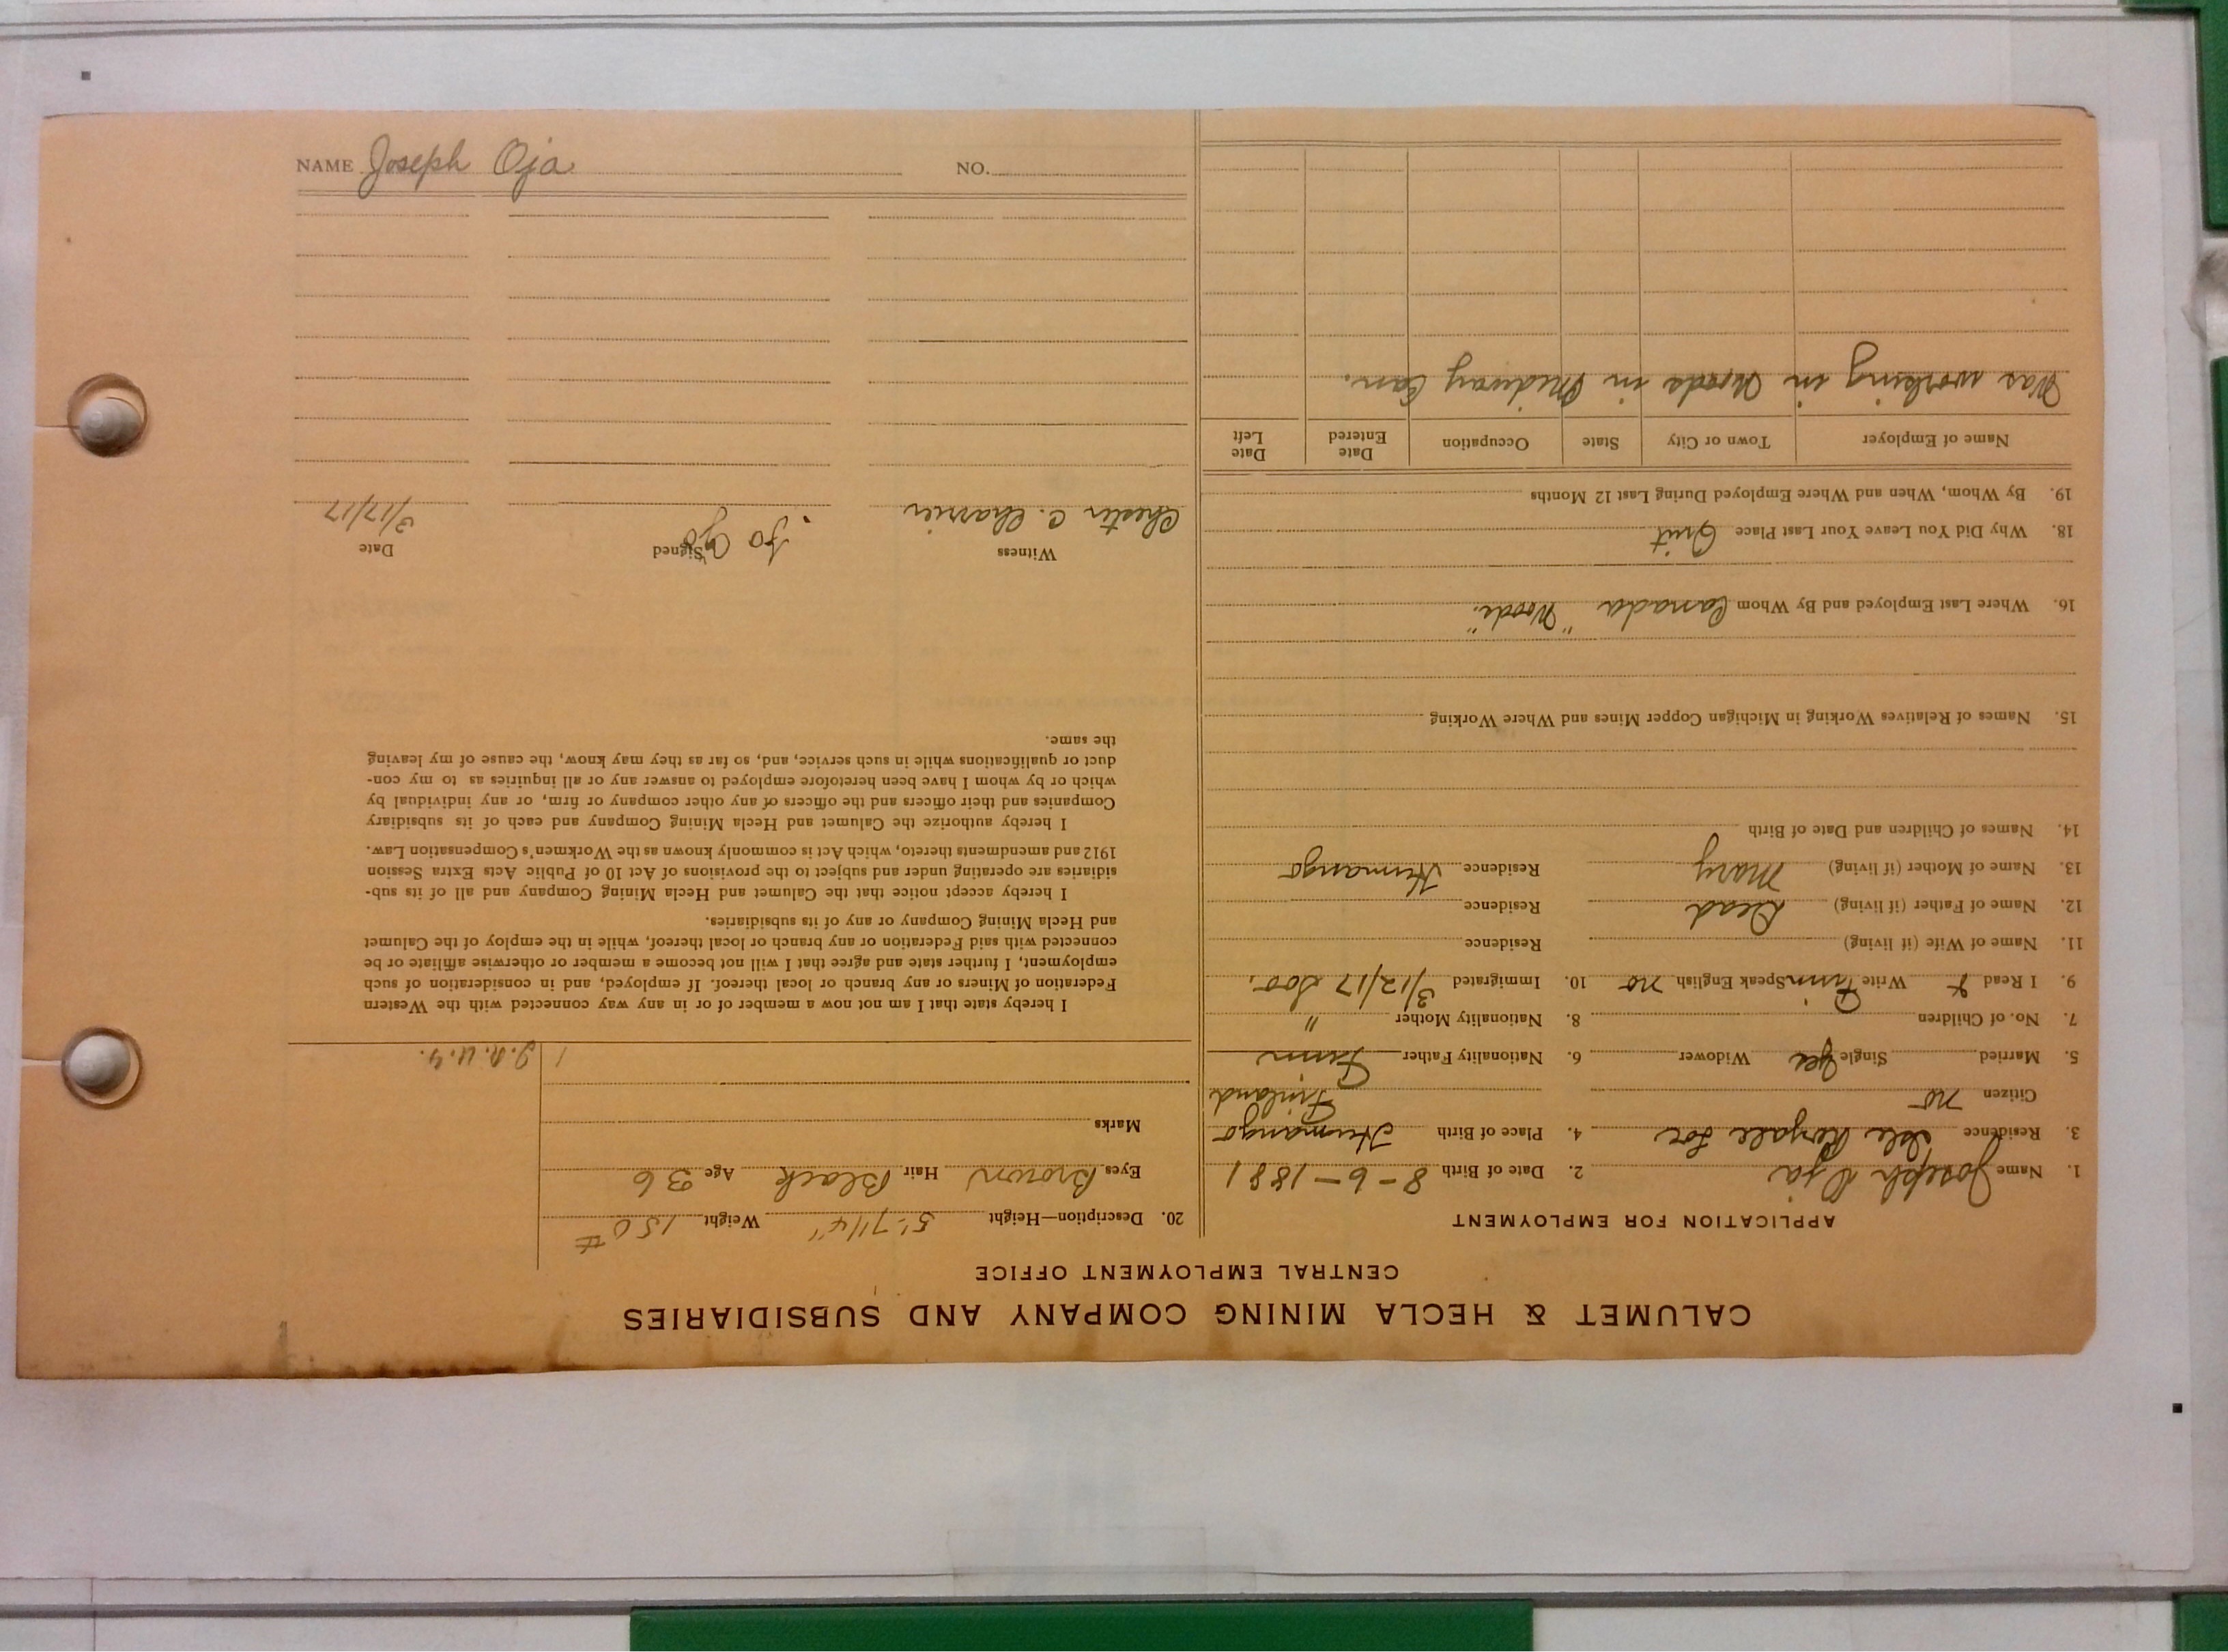 CALUMET & HECLA MINING COMPANY AND SUBSIDIARIES
CENTRAL EMPLOYMENT OFFICE
APPLICATION FOR EMPLOYMENT
1. Name Joseph Oja 2. Date of Birth 8-6-1881
3. Residence Isle Royale Loc 4. Place of Birth Humango
Citizen no Finland
5. Married Single yes Widower 6. Nationality Father Finn
7. No. of Children 8. Nationality Mother "
9. I Read & Write Finn Speak English no 10. Immigrated 3/12/17 Soo.
11. Name of Wife (if living) Residence
12. Name of Father (if living) Dead Residence
13. Name of Mother (if living) Mary Residence Humango
14. Names of Children and Date of Birth
15. Names of Relatives Working in Michigan Copper Mines and Where Working
16. Where Last Employed and By Whom Canada "Woods"
18. Why Did You Leave Your Last Place Quit
19. By Whom, When and Where Employed During Last 12 Months
Name of Employer Town or City State Occupation Date Entered Date Left
Was working in Woods in Midway Can.
20. Description—Height 5'-7 1/4" Weight 150#
Eyes Brown Hair Black Age 36
Marks
I hereby state that I am not now a member of or in any way connected with the Western
Federation of Miners or any branch or local thereof. If employed, and in consideration of such
employment, I further state and agree that I will not become a member or otherwise affiliate or be
connected with said Federation or any branch or local thereof, while in the employ of the Calumet
and Hecla Mining Company or any of its subsidiaries.
I hereby accept notice that the Calumet and Hecla Mining Company and all of its sub-
sidiaries are operating under and subject to the provisions of Act 10 of Public Acts Extra Session
1912 and amendments thereto, which Act is commonly known as the Workmen's Compensation Law.
I hereby authorize the Calumet and Hecla Mining Company and each of its subsidiary
Companies and their officers and the officers of any other company or firm, or any individual by
which or by whom I have been heretofore employed to answer any or all inquiries as to my con-
duct or qualifications while in such service, and, so far as they may know, the cause of my leaving
the same.
Witness Signed Date
Chester C. Charrier 3/17/17
NAME Joseph Oja NO.